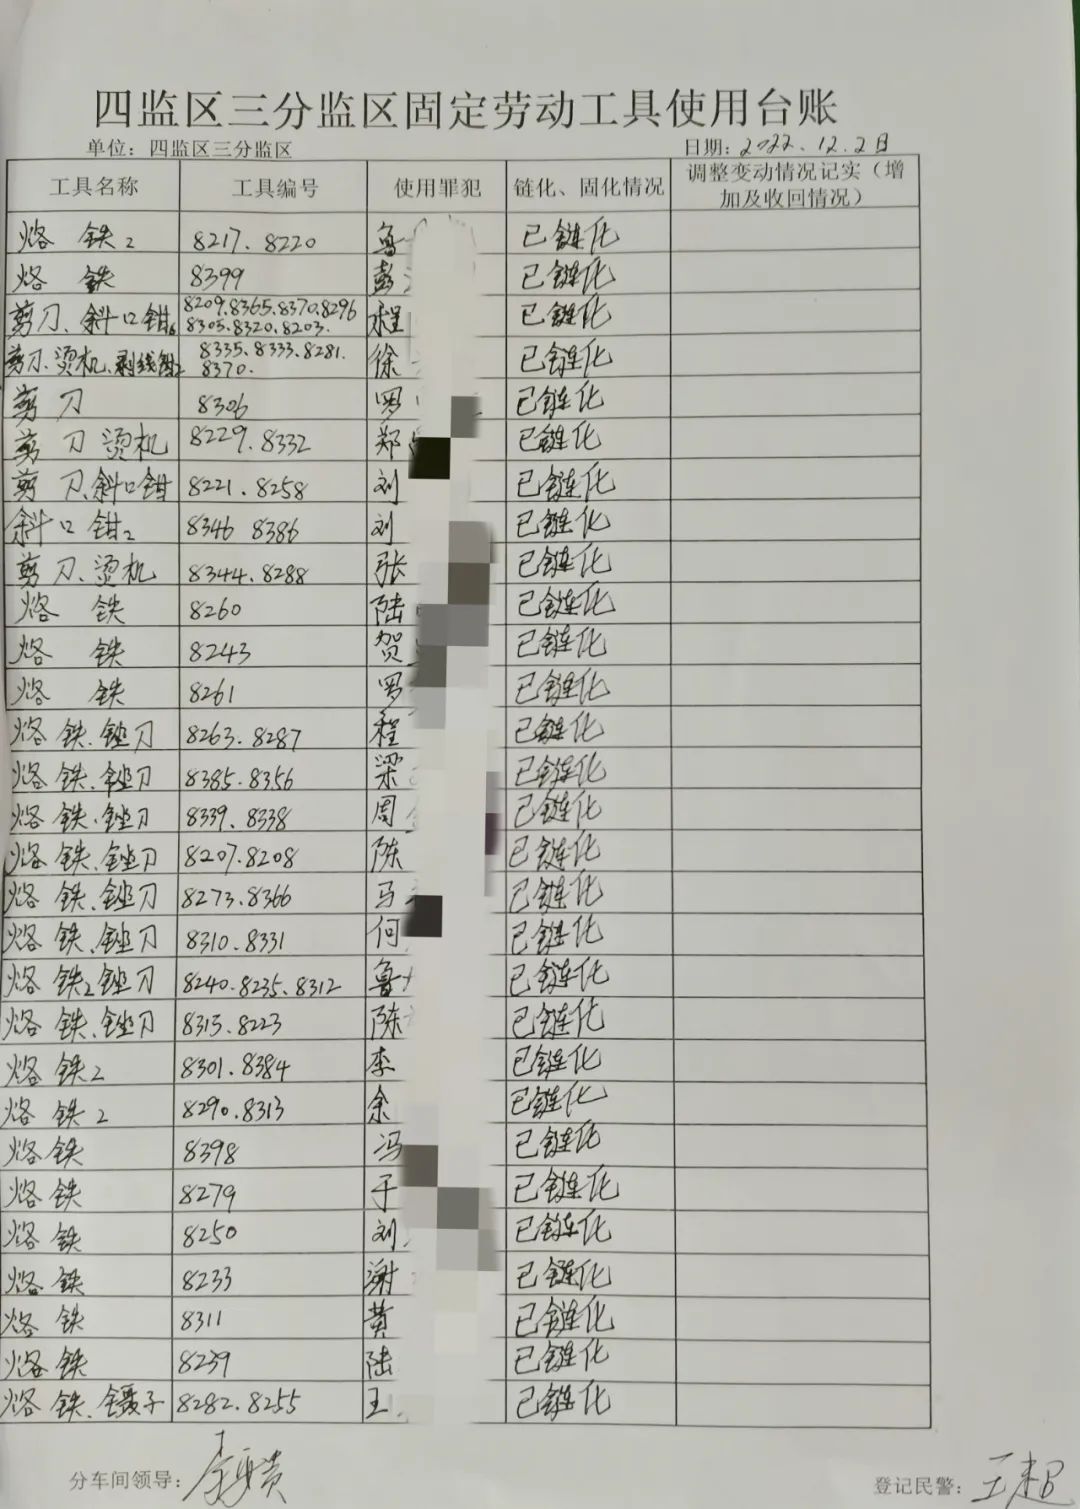 四监区三分监区固定劳动工具使用台账
单位：四监区三分监区 日期：2022.12.2日
工具名称 工具编号 使用罪犯 链化、固化情况 调整变动情况记实（增加及收回情况）
烙铁2 8217.8220 已链化
烙铁 8399 彭 已链化
剪刀、斜口钳6 8209.8365.8370.8296 8305.8320.8203. 程 已链化
剪刀、烫机、剥线钳2 8335.8333.8281. 8370. 徐 已链化
剪刀 8306 罗 已链化
剪刀烫机 8229.8332 郑 已链化
剪刀、斜口钳 8221.8258 刘 已链化
斜口钳2 8346 8386 刘 已链化
剪刀、烫机 8344.8288 张 已链化
烙铁 8260 陆 已链化
烙铁 8243 贺 已链化
烙铁 8261 罗 已链化
烙铁、锉刀 8263.8287 程 已链化
烙铁、锉刀 8385.8356 梁 已链化
烙铁、锉刀 8339.8338 周 已链化
烙铁、锉刀 8207.8208 陈 已链化
烙铁、锉刀 8273.8366 马 已链化
烙铁、锉刀 8310.8331 何 已链化
烙铁2锉刀 8240.8235.8312 鲁 已链化
烙铁、锉刀 8315.8223 陈 已链化
烙铁2 8301.8384 李 已链化
烙铁2 8290.8313 余 已链化
烙铁 8398 冯 已链化
烙铁 8279 于 已链化
烙铁 8250 刘 已链化
烙铁 8233 谢 已链化
烙铁 8311 黄 已链化
烙铁 8239 陆 已链化
烙铁、镊子 8282.8255 王 已链化
分车间领导： 登记民警：王超